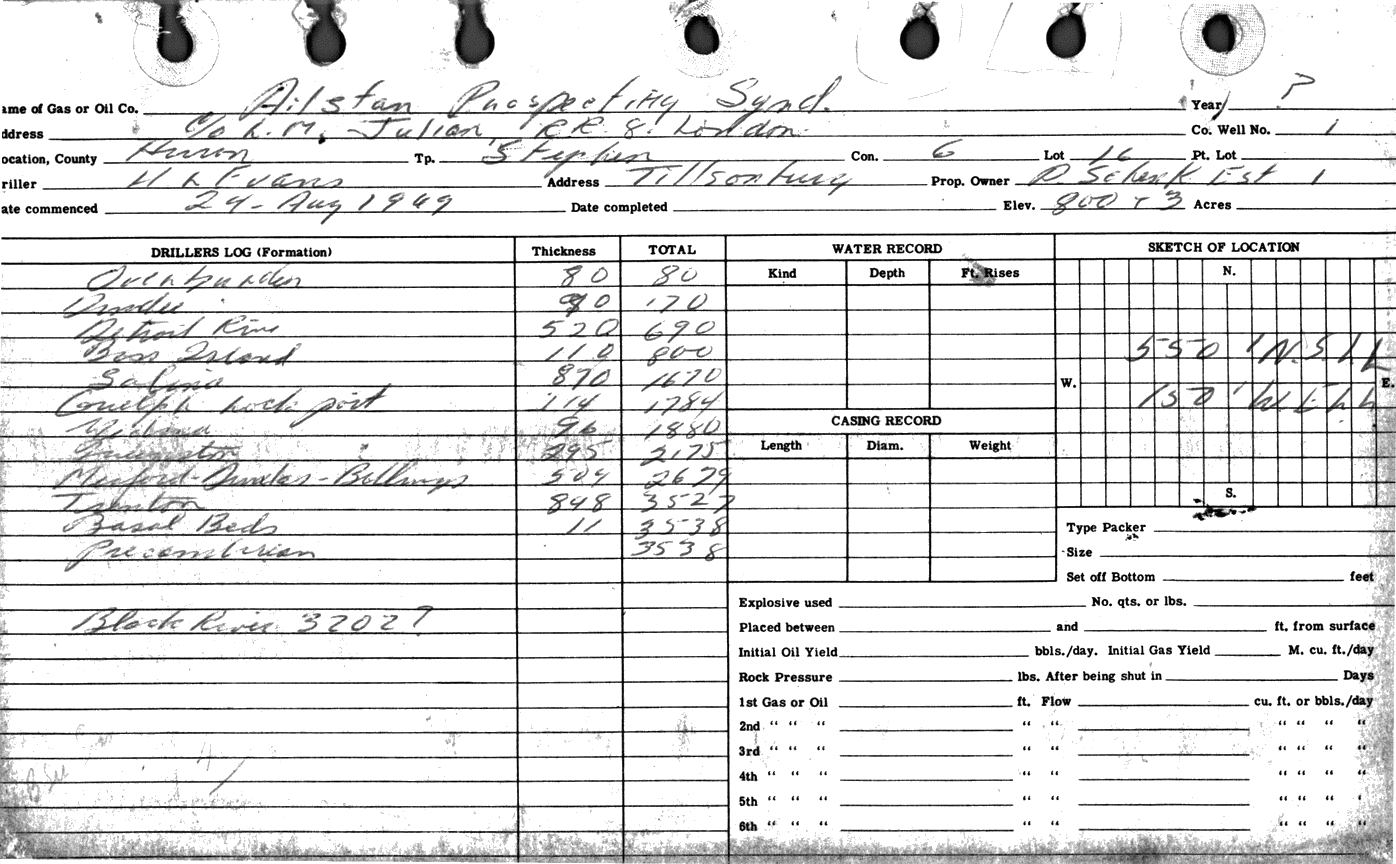 ame of Gas or Oil Co. Ailstan Prospecting Synd. Year ?
ddress c/o L.M. Julian, R.R. 8. London Co. Well No. 1
ocation, County Huron Tp. Stephen Con. 6 Lot 16 Pt. Lot
riller H L Evans Address Tillsonburg Prop. Owner D. Schenk Est 1
ate commenced 24-Aug 1949 Date completed Elev. 800 + 3 Acres
DRILLERS LOG (Formation) Thickness TOTAL
Overburden 80 80
Dundee 90 170
Detroit River 520 690
Bass Island 110 800
Salina 870 1670
Guelph Lockport 114 1784
96 1880
295 2175
Meaford-Dundas-Billings 504 2679
Trenton 848 3527
Basal Beds 11 3538
Precambrian 3538
Black River 3202?
WATER RECORD
Kind Depth Ft. Rises
CASING RECORD
Length Diam. Weight
SKETCH OF LOCATION
N.
550 ' N.S L L
W. E.
150 ' W E L L
S.
Type Packer
Size
Set off Bottom feet
Explosive used No. qts. or lbs.
Placed between and ft. from surface
Initial Oil Yield bbls./day. Initial Gas Yield M. cu. ft./day
Rock Pressure lbs. After being shut in Days
1st Gas or Oil ft. Flow cu. ft. or bbls./day
2nd “ “ “ “ “ “ “ “ “
3rd “ “ “ “ “ “ “ “ “
4th “ “ “ “ “ “ “ “ “
5th “ “ “ “ “ “ “ “ “
6th “ “ “ “ “ “ “ “ “